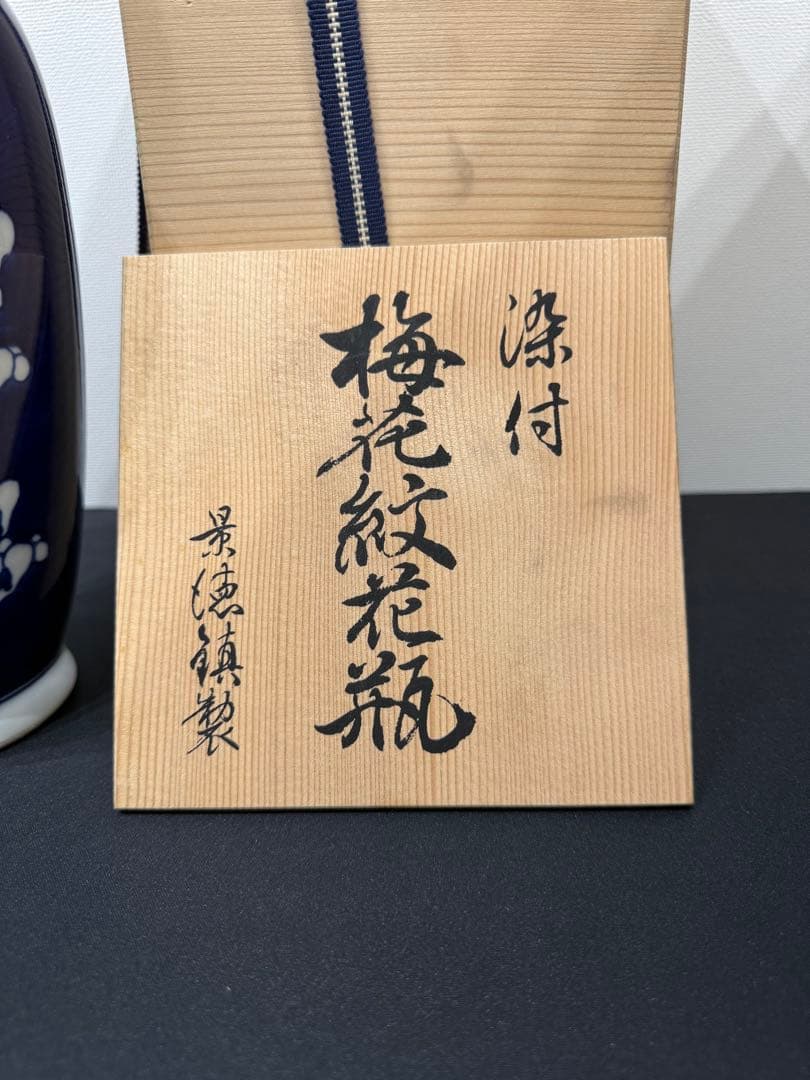 染付
梅花紋花瓶
景徳鎮製